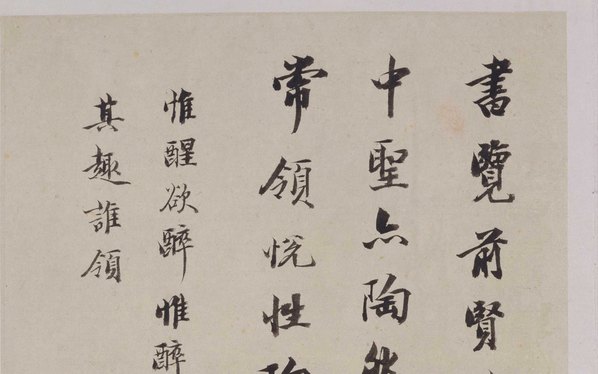 書覽前賢
中聖亦陶然
常領悅性陶
惟醒欲醉惟醉
其趣誰領